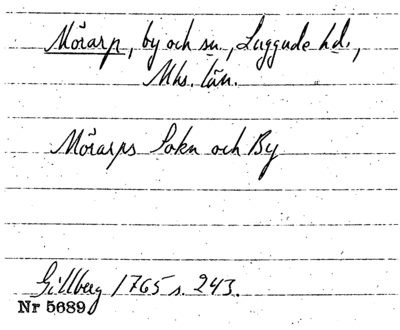 Mörarp, by och sn., Luggude hd.,
Mhs. län.
Mörarps Sokn och By
Gillberg 1765 s. 243.
Nr 5689